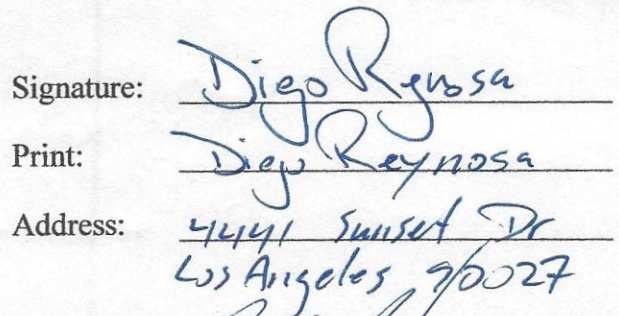 Signature: Diego Reynosa
Print: Diego Reynosa
Address: 4441 Sunset Dr
Los Angeles 90027